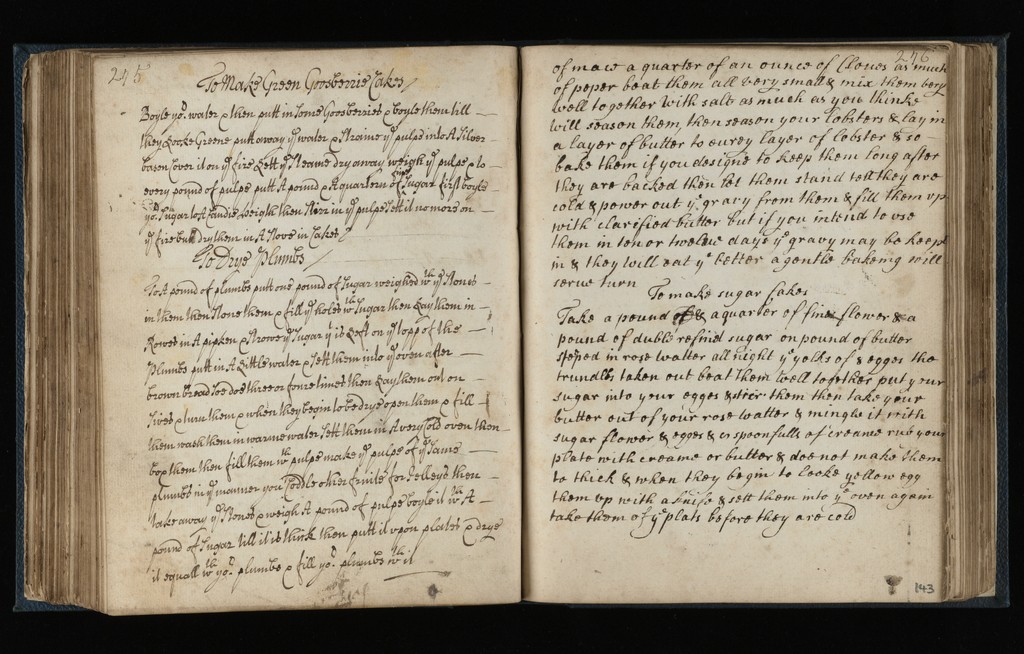 245
To Make Green Goosberrie Cakes
Boyle yo.r water & then putt in some Goosberries & boyle them till
they Looke Greene putt away ye water & straine ye pulpe into A silver
bason Cover it on ye fire & Lett ye steame dry away weigh ye pulpe & to
every pound of pulpe putt A pound & A quartern of fine Sugar first boyle
yo.r Sugar to A Candie heigth then stirr in ye pulpe Sett it no more on
ye fire but dry them in A stove in Cakes
To Drye Plumbs
To A pound of plumbs putt one pound of Sugar weighed wth ye stones
in them then stone them & fill ye holes wth Sugar then Lay them in
Rowes in A pipken & strowe ye Sugar yt is Left on ye topp of the
Plumbs putt in A Little water & Sett them into ye oven after
brown Bread soe doe three or foure times then Lay them out on
sives & turn them & when they begin to be drye open them & fill
them wash them in warme water Sett them in A very Cold oven then
box them then fill them wth pulpe make ye pulpe of ye Same
plumbs in ye manner you Coddle other fruite for Jelleys then
take away ye stones & weigh A pound of pulpe boyle it wth A
pound of Sugar till it is thick then putt it upon plates & drye
it equall wth yo.r plumbs & fill yo.r plumbs wth it
246
of mace a quarter of an ounce of Cloves as much
of peper beat them all very small & mix them very
well together with salt as much as you thinke
will season them, then season your lobsters & lay in
a layer of butter to eurey layer of lobster & so
bake them if you designe to keep them long after
they are backed then let them stand tell they are
cold & power out ye gravy from them & fill them up
with clarified butter but if you intend to use
them in ten or twelue days ye gravy may be keept
in & they will eat ye better a gentle bakeing will
serve turn
To make sugar Cakes
Take a pound & a quarter of fine flower & a
pound of duble refined sugar on pound of butter
steped in rose watter all night ye yolds of 8 egges the
trundles taken out beat them well together put your
sugar into your egges & stir them then take your
butter out of your rose watter & mingle it with
sugar flower & egges & 6 spoonfulls of creame rub your
plate with creame or butter & doe not make them
to thick & when they begin to Looke yellow egg
them up with a knife & sett them into ye oven again
take them of ye plats before they are cold
143